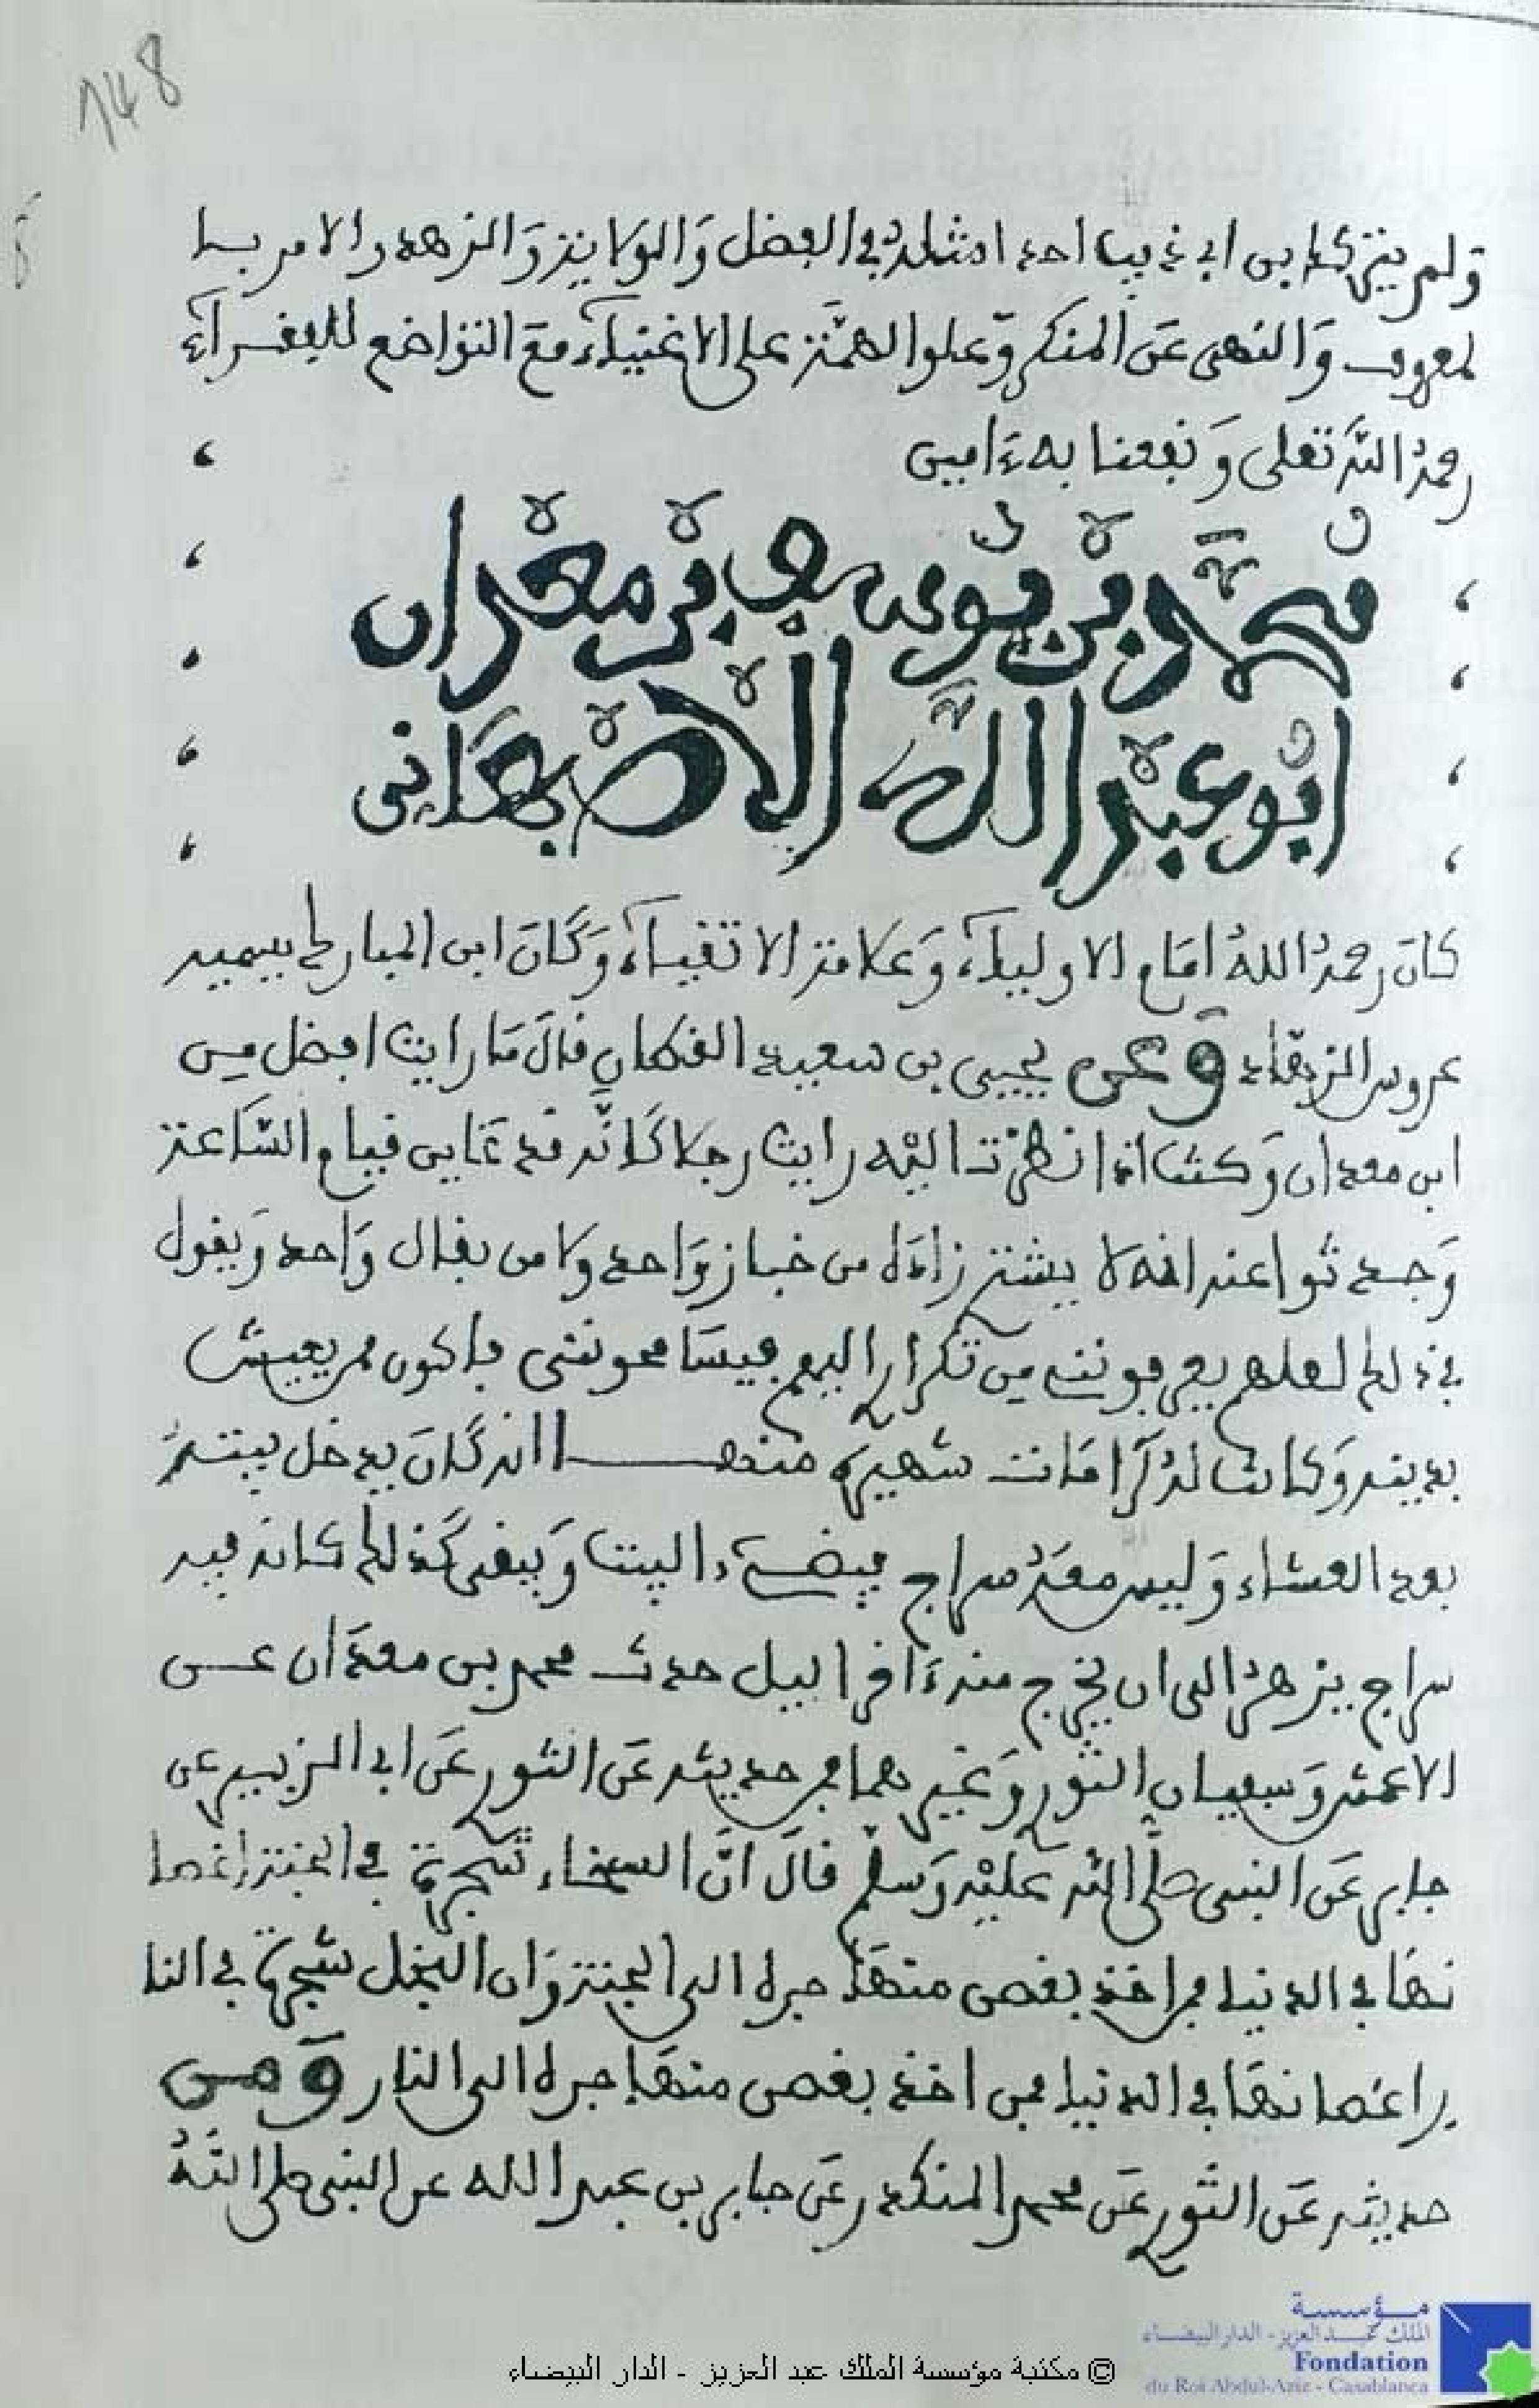 148
ولم يترك ابن ابي غريب احدا مثله في الفضل والولاية والزهد والامر با
لمعروف والنهي عن المنكر وعلوا الهمة على الاغنياء مع التواضع للفقراء
رحمه الله تعلى ونفعنا به ءامين
محمد بن يوسف بن معدان
ابو عبد الله الاصبهاني
كان رحمه الله امام الاولياء وعلامة الاتقياء وكان ابن المبارك يسميه
عروس الزهاد وعن يحيى بن سعيد القطان قال ما رايت افضل من
ابن معدان وكنت اذا نظرت اليه رايت رجلا كانه قد عاين قيام الساعة
وحدثوا عنه انه لا يشتر زاده من خباز واحد ولا من بقال واحد ويقول
في ذلك لعلهم يعرفونني من تكرار البيع فيسامحونني فاكون ممن يعيش
بدينه وكانت له كرامات شهيرة منها انه كان يدخل بيته
بعد العشاء وليس معه سراج فيضيء البيت ويبقى كذلك كانه فيه
سراج يزهر الى ان يخرج منه ءاخر اليل حدث محمد بن معدان عن
الاعمش وسفيان الثور وغيرهما فمن حديثه عن الثور عن ابي الزبير عن
جابر عن النبي صلى الله عليه وسلم قال ان السخاء شجرة في الجنة اغصا
نها في الدنيا فمن اخذ بغصن منها جره الى الجنة وان البخل شجرة في النا
ر اغصانها في الدنيا فمن اخذ بغصن منها جره الى النار ومن
حديثه عن الثور عن محمد المنكدر عن جابر بن عبد الله عن النبي صلى الله
© مكتبة مؤسسة الملك عبد العزيز - الدار البيضاء
مؤسسة
الملك عبد العزيز - الدار البيضاء
Fondation
du Roi Abdul-Aziz - Casablanca